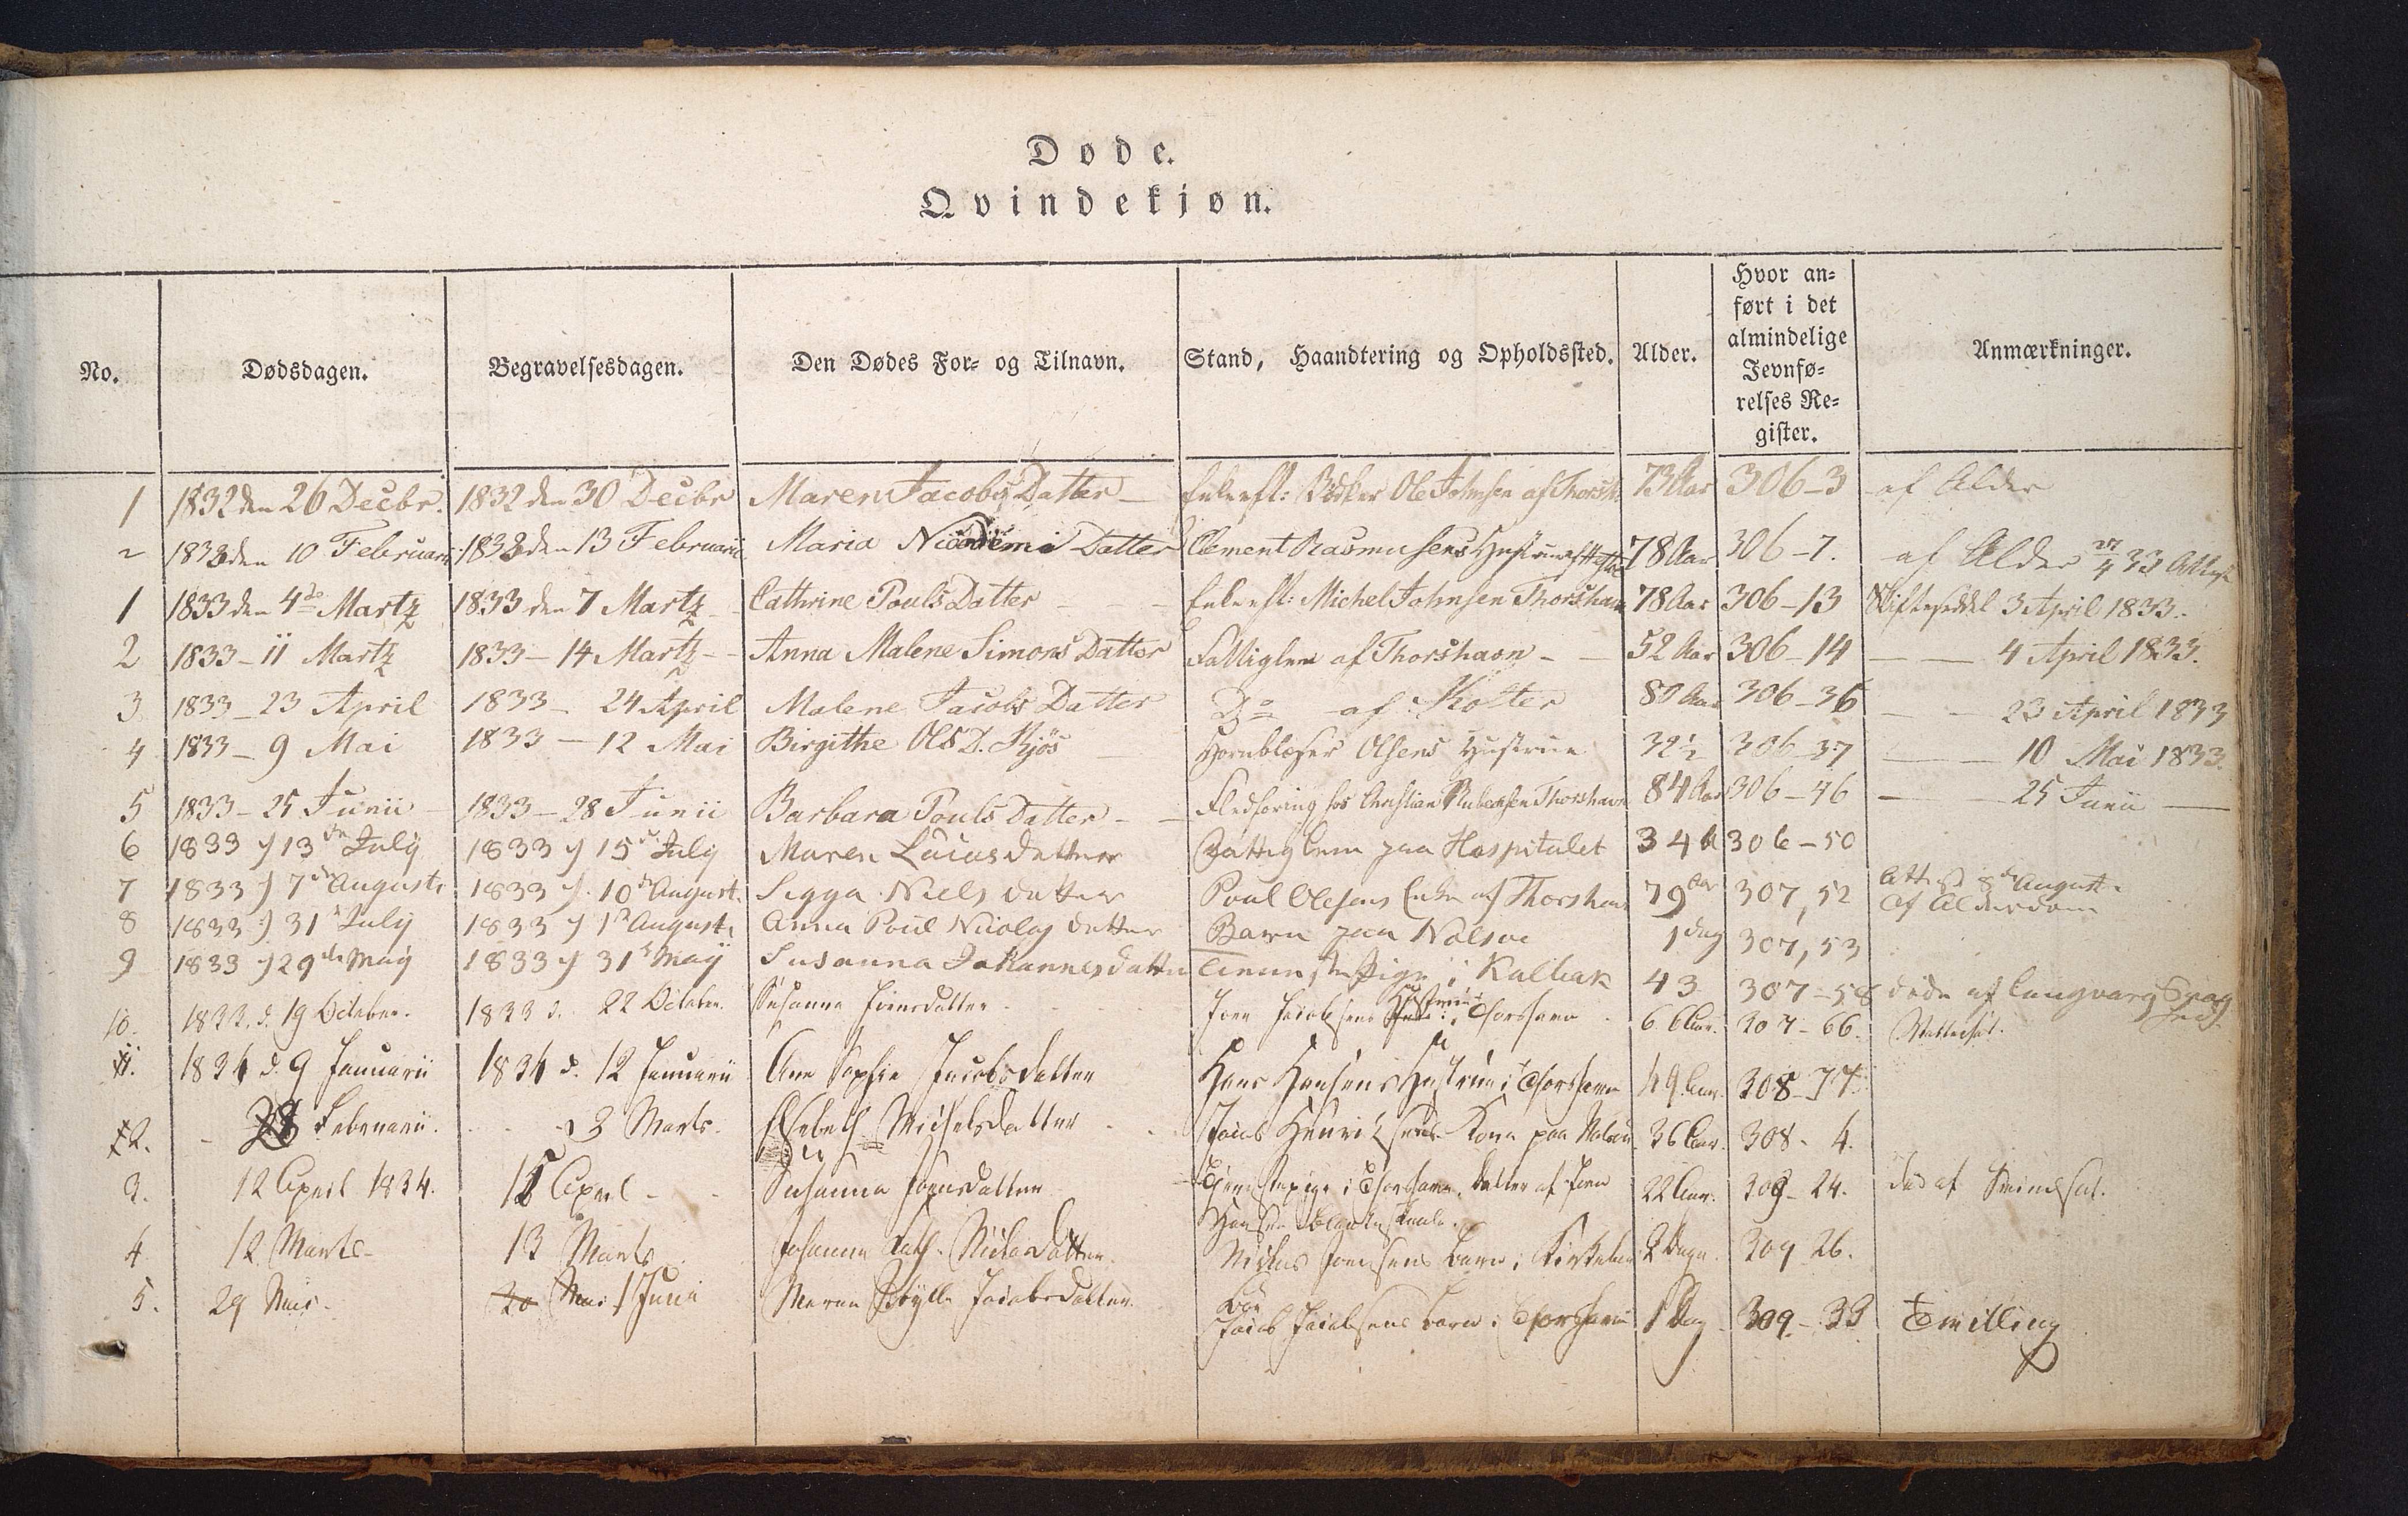 Døde.
Qvindekjøn.
No. Dødsdagen. Begravelsesdagen. Den Dødes For- og Tilnavn. Stand, Haandtering og Opholdssted. Alder. Hvor an-
ført i det
almindelige
Jevnfø-
relses Re-
gister. Anmærkninger.
1 1832 den 26 Decbr. 1832 den 30 Decbr Maren Jacobs Datter Ole Johnsen af Thorsh. 73 Aar 306-3 af Alder
2 1833 den 10 Februarii 1833 den 13 Februarii Maria Nicodemi Datter Clement Rasmusens Hustrue 78 Aar 306-7. af Alder 27/4 33
1 1833 den 4de Martz 1833 den 7 Martz Cathrine Pouls Datter Michel Johnsen Thorshavn 78 Aar 306-13 Skifteseddel 3 April 1833.
2 1833 - 11 Martz 1833 - 14 Martz Anna Malene Simons Datter Fattiglem af Thorshavn 52 Aar 306-14 4 April 1833.
3 1833 - 23 April 1833 - 24 April Malene Jacobs Datter Do af Kolter 80 Aar 306-36 23 April 1833
4 1833 - 9 Mai 1833 - 12 Mai Birgithe Ols D. Kjös Hornblæser Olsens Hustrue 32½ 306-37 10 Mai 1833.
5 1833 - 25 Junii 1833 - 28 Junii Barbara Pouls Datter Fledføring hos Christian Thorshavn 84 Aar 306-46 25 Junii
6 1833 d 13de July 1833 d 15de July Maren Lucasdatter Fattiglem paa Hospitalet 34 306-50
7 1833 d 7de August 1833 d. 10de August. Segga Niels datter Poul Olesens Enke af Thorshavn 79 Aar 307,52 Attest 8de August.
Af Alderdom
8 1833 d 31 July 1833 d 1 August Anna Poul Nicolaj datter Barn paa Nolsoe 1 dag 307,53
9 1833 d 29de May 1833 d 31 May Susanna Johannesdatter Tienneste Pige i Kalbak 43 307-58 døde af langvarig
10. 1833. d. 19 October. 1833 d. 22 October. Susanne Joensdatter Joen Jacobsens Hustrue i Thorshavn 66 Aar. 307-66.
11. 1834 d. 9 Januarii 1834 d. 12 Januarii Ane Sophie Jacobsdatter Hans Hansens Hustrue i Thorshavn 49 Aar. 308-77.
2. Februarii. 3 Marts. Elsebeth Michelsdatter Jacob Henriksens Kone paa Nolsøe 36 Aar. 308-4.
3. 12 April 1834. 15 April Susanna Joensdatter Tjenestepige i Thorshavn, Datter af Joen
Hansen 22 Aar. 309-24. død af
4. 12 Marts 13 Marts Johanne Cath. Niclasdatter. Niclas Joensens Barn i Kirkebøe 2 Dage. 309-26.
5. 29 Mai. 30 Mai 1 Juni Maren Sibylle Jacobsdatter. Jacob Jacobsens Barn i Thorshavn 1 Dag 309-33 Tvilling